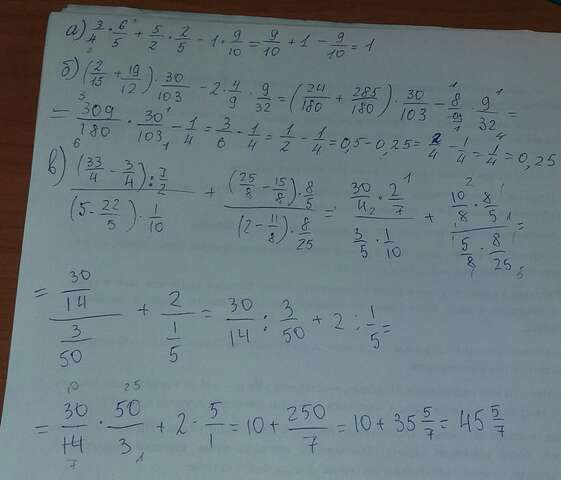 а) 3/4 · 6/5 + 5/2 · 2/5 − 1 · 9/10 = 9/10 + 1 − 9/10 = 1
б) (2/15 + 19/12) · 30/103 − 2 · 4/9 · 9/32 = (24/180 + 285/180) · 30/103 − 8/9 · 9/32 =
= 309/180 · 30/103 − 1/4 = 3/6 − 1/4 = 1/2 − 1/4 = 0,5 − 0,25 = 2/4 − 1/4 = 1/4 = 0,25
в) ((33/4 − 3/4) : 7/2) / ((5 − 22/5) · 1/10) + ((25/8 − 15/8) · 8/5) / ((2 − 11/8) · 8/25) = (30/4 · 2/7) / (3/5 · 1/10) + (10/8 · 8/5) / (5/8 · 8/25) =
= (30/14) / (3/50) + 2 / (1/5) = 30/14 : 3/50 + 2 : 1/5 =
= 30/14 · 50/3 + 2 · 5/1 = 10 + 250/7 = 10 + 35 5/7 = 45 5/7